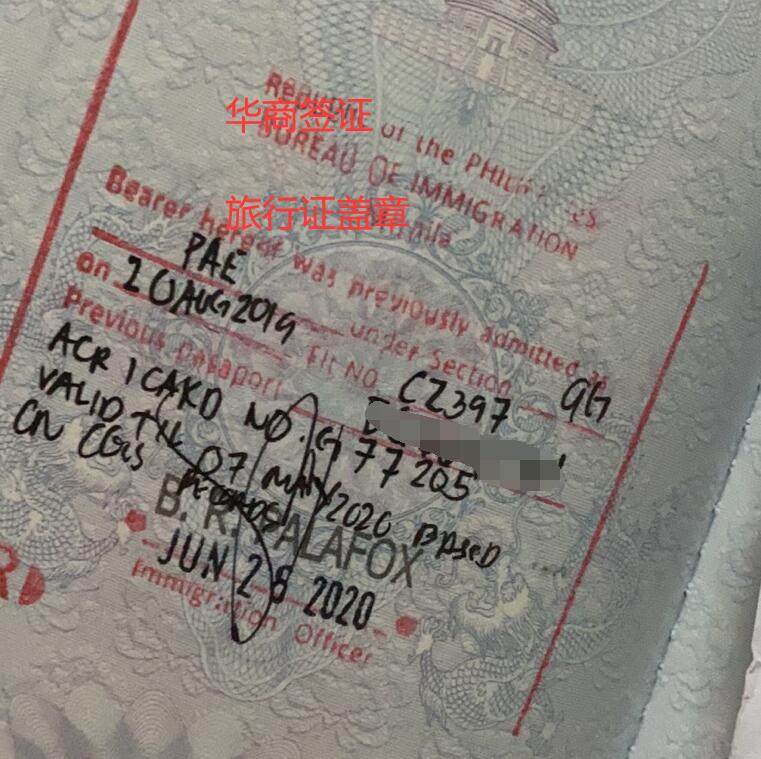 华商签证
Republic of the PHILIPPINES
BUREAU OF IMMIGRATION
Manila
旅行证盖章
Bearer hereof was previously admitted as
PAE under Section 9G
on 20 AUG 2019 Flt NO. CZ397
Previous passport
ACR I CARD NO. G 77205
VALID TIL 07 MAY 2020 BASED
ON CGIS RECORDS
B. R. PALAFOX
JUN 26 2020
Immigration Officer